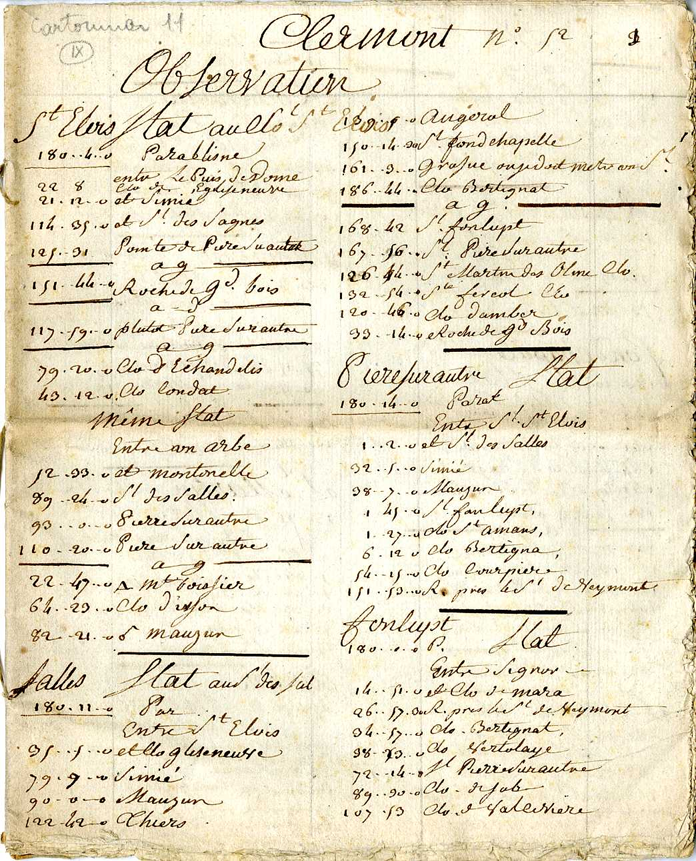 Cartonnier 11
IX
Clermont n.º 52
Observation
St Elois Stat au Clo.t St Elois
180..4..0 Parablisme
entre Le Puis de Dome
22 8 Clo de Egliseneuve
21..12..0 et Simié
114..35..0 et S.l des Sagnes
125..31 Pointe de Piere Suautre
a g
151..44..0 Roche de g.d bois
a d
117..59..0 plutot Piere Surautre
a g
79..20..0 Clo d'Echandelis
43..12..0 Clo Condat
même Stat
Entre un arbe
52..33..0 et montonelle
89..24..0 S.l des Salles.
93..0..0 Pierre Surautre
110..20..0 Piere Surautre
a g
22..47..0 Δ m.t boissier
64..23..0 Clo d'usson
82..21..0 mauzun
Salles Stat au S.l des Sal
180..11..0 Par
Entre St Elois
35..5..0 et Clo gliseneuve
79..9..0 Simié
90..0..0 Mauzun
122..42..0 Thiers
0 augerol
150..14..0 S.t fondchapelle
161..3..0
186..44..0 Clo Bertignat
a g.
168..42 S.t fonlupt
167..56..0 S.t Piere Surautre
126..44..0 S.t Martin des Olme Clo.
132..54..0 S.te fereol Clo
120..46..0 Clo d'amber
33..14..0 Roche de g.d Bois
Piere surautre Stat
180..14..0 Parat
Entre S.l St Elois
1..2..0 et S.l des Salles
32..5..0 Simié
38..7..0 Mauzun
1 45..0 S.t fonlupt,
1..27..0 clo S.t amans,
6..12..0 Clo Bertigna,
54..15..0 Clo Courpiere
151..53..0 R. pres le S.l de Neymont
fonlupt Stat
180..0..0 P.
Entre Signor
14..51..0 et Clo de mara
26..57..30 R. pres le S.l de Neymont
34..57..0 Clo. Bertignat,
38..23..0 Clo Vertolaye
72..14..0 S.t Pierre Surautre
89..30..0 Clo de Job
107..53 Clo d. Valcivière